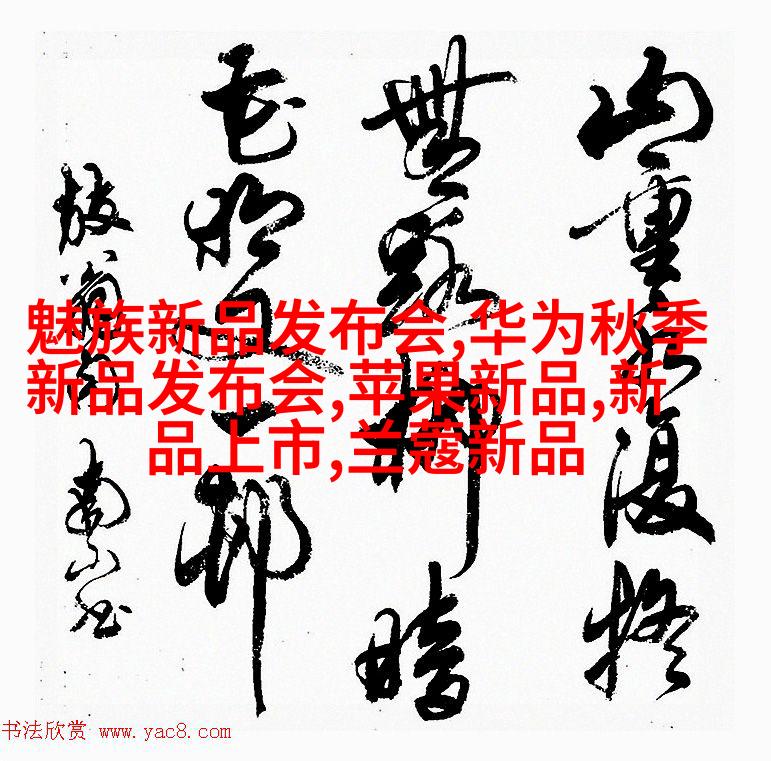 山重水復疑
無路柳暗
花明又一邨
放翁句 南山
魅族新品发布会,华为秋季
新品发布会,苹果新品,新
品上市,兰蔻新品
书法欣赏 www.yac8.com